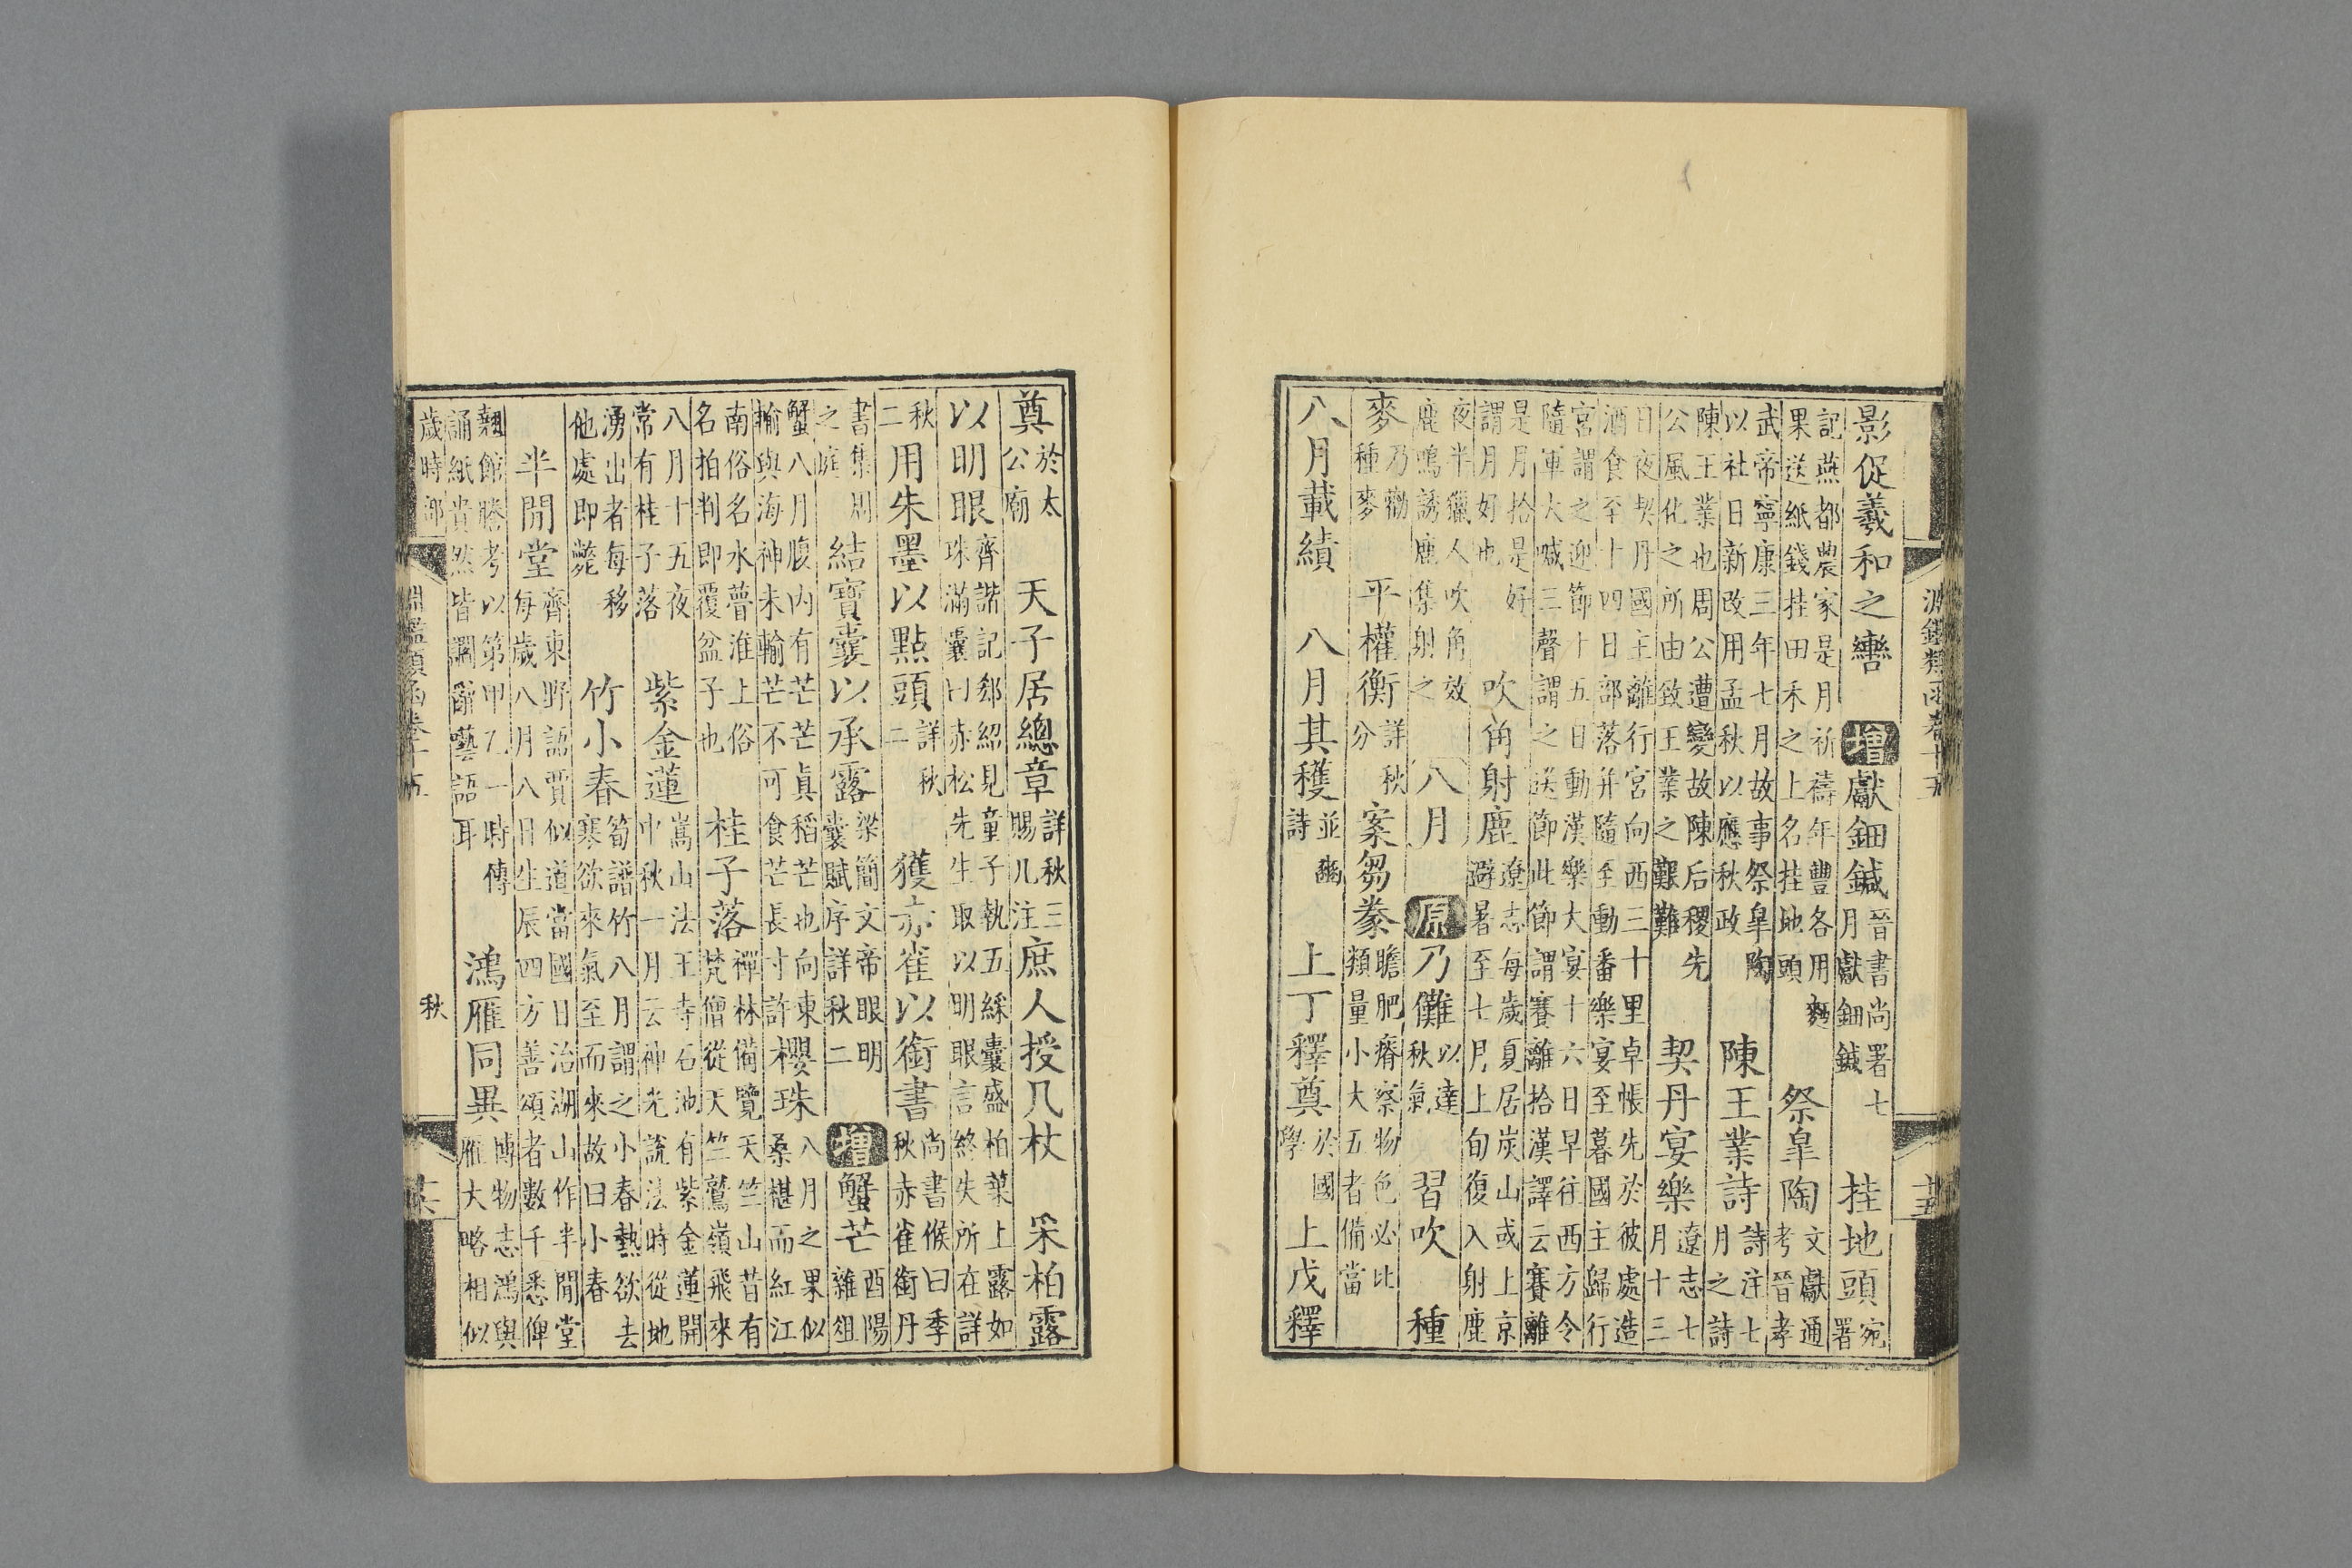 影促羲和之轡　增獻鈿鍼晉書尚署七月獻鈿鍼　挂地頭宛署
記燕都農家是月祈禱年豐各用麪果送紙錢挂田禾之上名挂地頭　祭皐陶文獻通考晉孝
武帝寧康三年七月故事祭皐陶以社日新改用孟秋以應秋政　陳王業詩詩注七月之詩
陳王業也周公遭變故陳后稷先公風化之所由致王業之艱難　契丹宴樂遼志七月十三
日夜契丹國主離行宮向西三十里卓帳先於彼處造酒食至十四日部落并隨至動番樂宴至暮國主歸行
宮謂之迎節十五日動漢樂大宴十六日早往西方令隨軍大喊三聲謂之送節此節謂賽離拾漢譯云賽離
是月拾是好謂月好也　吹角射鹿遼志每歲夏居炭山或上京避暑至七月上旬復入射鹿
夜半獵人吹角效鹿鳴誘鹿集射之　八月　原乃儺以達秋氣　習吹　種
麥乃勸種麥　平權衡詳秋分　案芻豢瞻肥瘠察物色必比類量小大五者備當
八月載績　八月其穫並豳詩　上丁釋奠於國學　上戊釋
淵鑑類函卷十五
十五
奠於太公廟　天子居總章詳秋三賜几注　庶人授几杖　采柏露
以明眼齊諧記鄧紹見童子執五綵囊盛柏葉上露如珠滿囊曰赤松先生取以明眼言終失所在詳
秋二　用朱墨以點頭詳秋二　獲赤雀以銜書尚書候曰季秋赤雀銜丹
書集周之庭　結寶囊以承露梁簡文帝眼明囊賦序詳秋二　增蟹芒酉陽雜俎
蟹八月腹內有芒芒真稻芒也向東輸與海神未輸芒不可食芒長寸許　櫻珠八月之果似桑椹而紅江
南俗名水蕾淮上俗名拍判即覆盆子也　桂子落禪林備覽天竺山昔有梵僧從天竺鷲嶺飛來
八月十五夜常有桂子落　紫金蓮嵩山法王寺石池有紫金蓮開中秋一月云神光說法時從地
湧出者每移他處即斃　竹小春筍譜竹八月謂之小春熱欲去寒欲來氣至而來故曰小春
半閒堂齊東野語賈似道當國日治湖山作半閒堂每歲八月八日生辰四方善頌者數千悉俾
翹館謄考以第甲乙一時傳誦紙貴然皆讇辭囈語耳　鴻雁同異博物志鴻與雁大略相似
歲時部　淵鑑類函卷十五　秋
十六